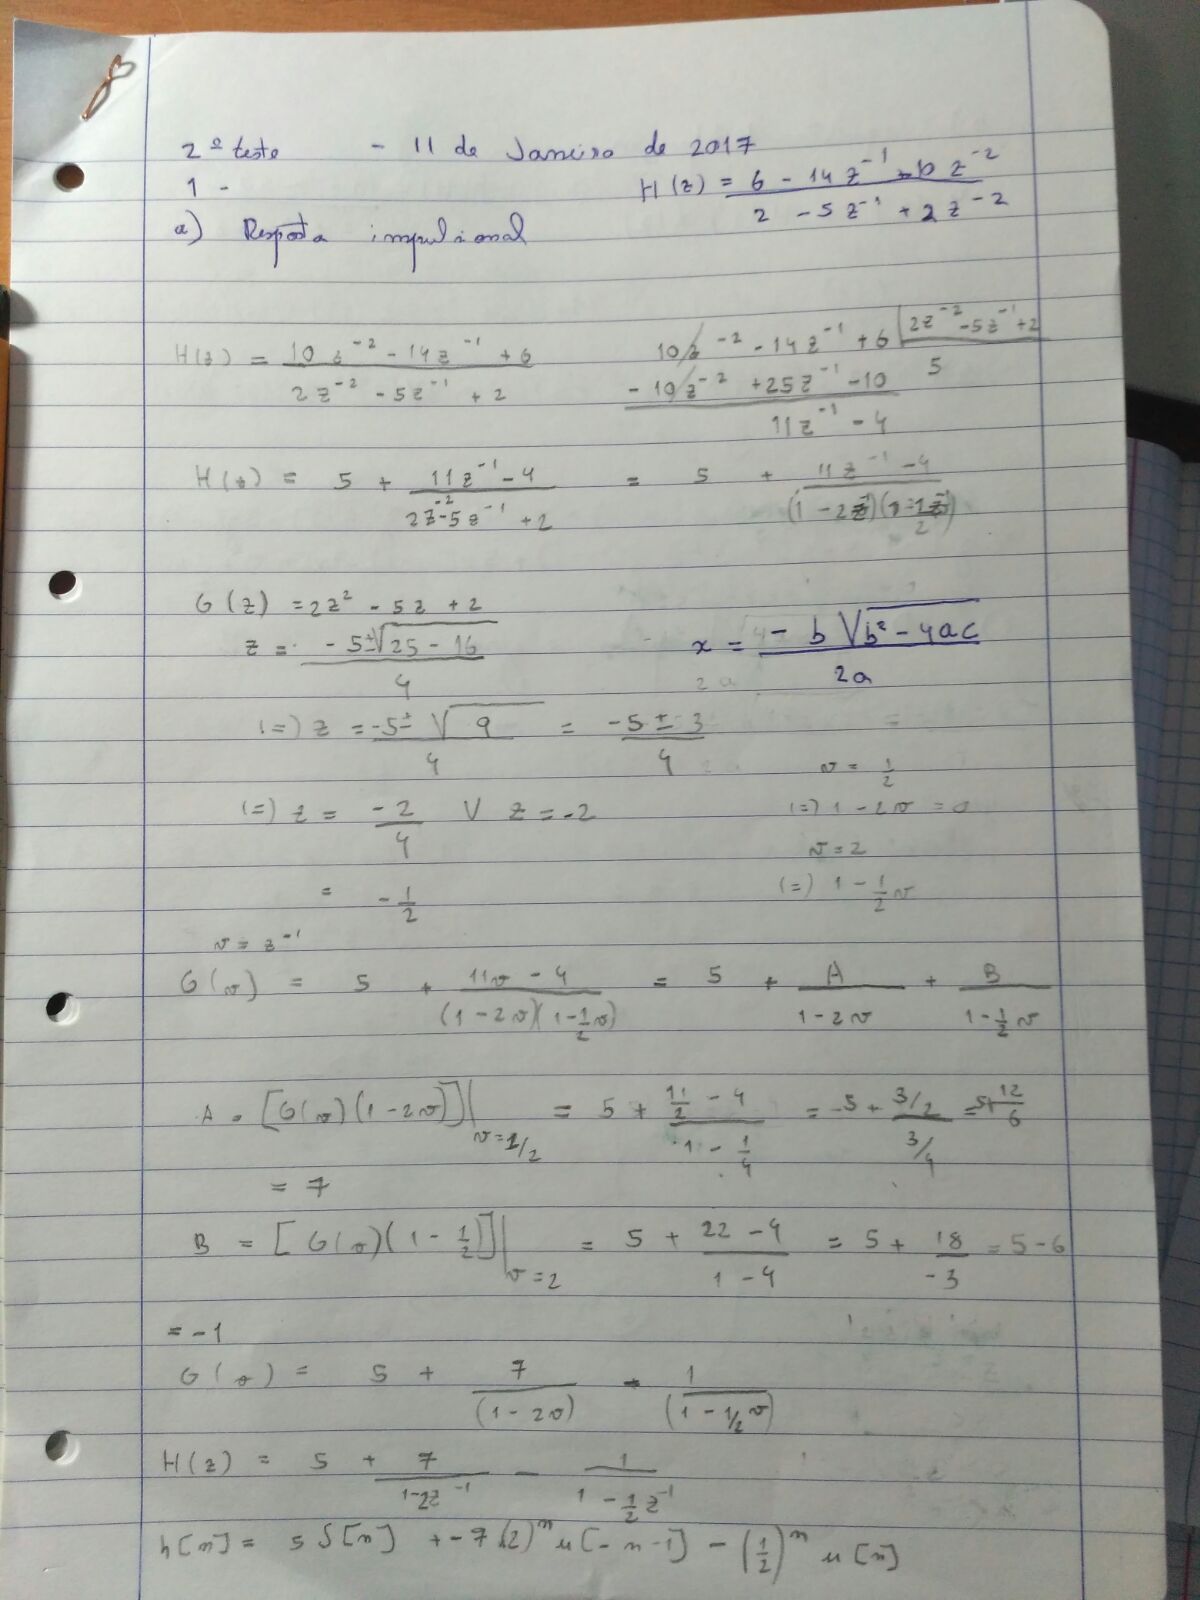 2º teste - 11 de Janeiro de 2017
1 - H(z) = (6 - 14z^-1 + 10z^-2) / (2 - 5z^-1 + 2z^-2)
a) Resposta impulsional
H(z) = (10z^-2 - 14z^-1 + 6) / (2z^-2 - 5z^-1 + 2)
10z^-2 - 14z^-1 + 6 | 2z^-2 - 5z^-1 + 2
-10z^-2 + 25z^-1 - 10 5
11z^-1 - 4
H(z) = 5 + (11z^-1 - 4) / (2z^-2 - 5z^-1 + 2) = 5 + (11z^-1 - 4) / ((1 - 2z^-1)(1 - 1/2 z^-1))
G(z) = 2z^2 - 5z + 2
z = (-5 ± √(25 - 16)) / 4 x = (-b √(b^2 - 4ac)) / 2a
(=) z = (-5 ± √9) / 4 = (-5 ± 3) / 4
v = 1/2
(=) z = -2/4 V z = -2 (=) 1 - 2v = 0
v = 2
= -1/2 (=) 1 - 1/2 v
v = z^-1
G(v) = 5 + (11v - 4) / ((1 - 2v)(1 - 1/2 v)) = 5 + A / (1 - 2v) + B / (1 - 1/2 v)
A = [G(v)(1 - 2v)]|v=1/2 = 5 + (11/2 - 4) / (1 - 1/4) = 5 + (3/2) / (3/4) = 5 + 12/6
= 7
B = [G(v)(1 - 1/2)]|v=2 = 5 + (22 - 4) / (1 - 4) = 5 + 18 / -3 = 5 - 6
= -1
G(v) = 5 + 7 / (1 - 2v) - 1 / (1 - 1/2 v)
H(z) = 5 + 7 / (1 - 2z^-1) - 1 / (1 - 1/2 z^-1)
h[n] = 5 δ[n] + -7 (2)^n u[-n-1] - (1/2)^n u[n]